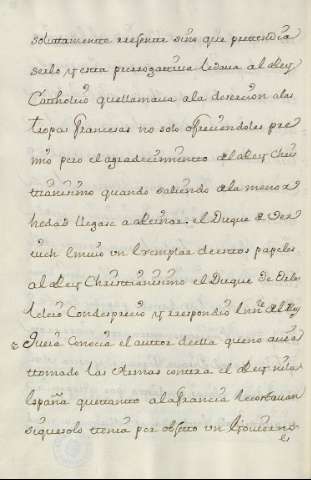 solattamente rresfente sino que prettendia
serlo y esta prerrogattiva le dava al Rey
Cattholico que llamava a la desercion a las
tropas francesas no solo ofreciendoles pre
mio pero el agradecimiento del Rey Chris
ttianisimo quando saliendo de la menor
hedad llegase a Reinar. el Duque de Ber
uich Emvio un Exemplar de estos papeles
al Rey Christtianisimo el Duque de Orle
 Con desprecio y respondio en nre. del Rey
 conocia el auttor de ella que no avia
ttomado las Armas contra el Rey ni la
españa que tanto a la francia le costavan
si que solo tenia por objeto un Govierno